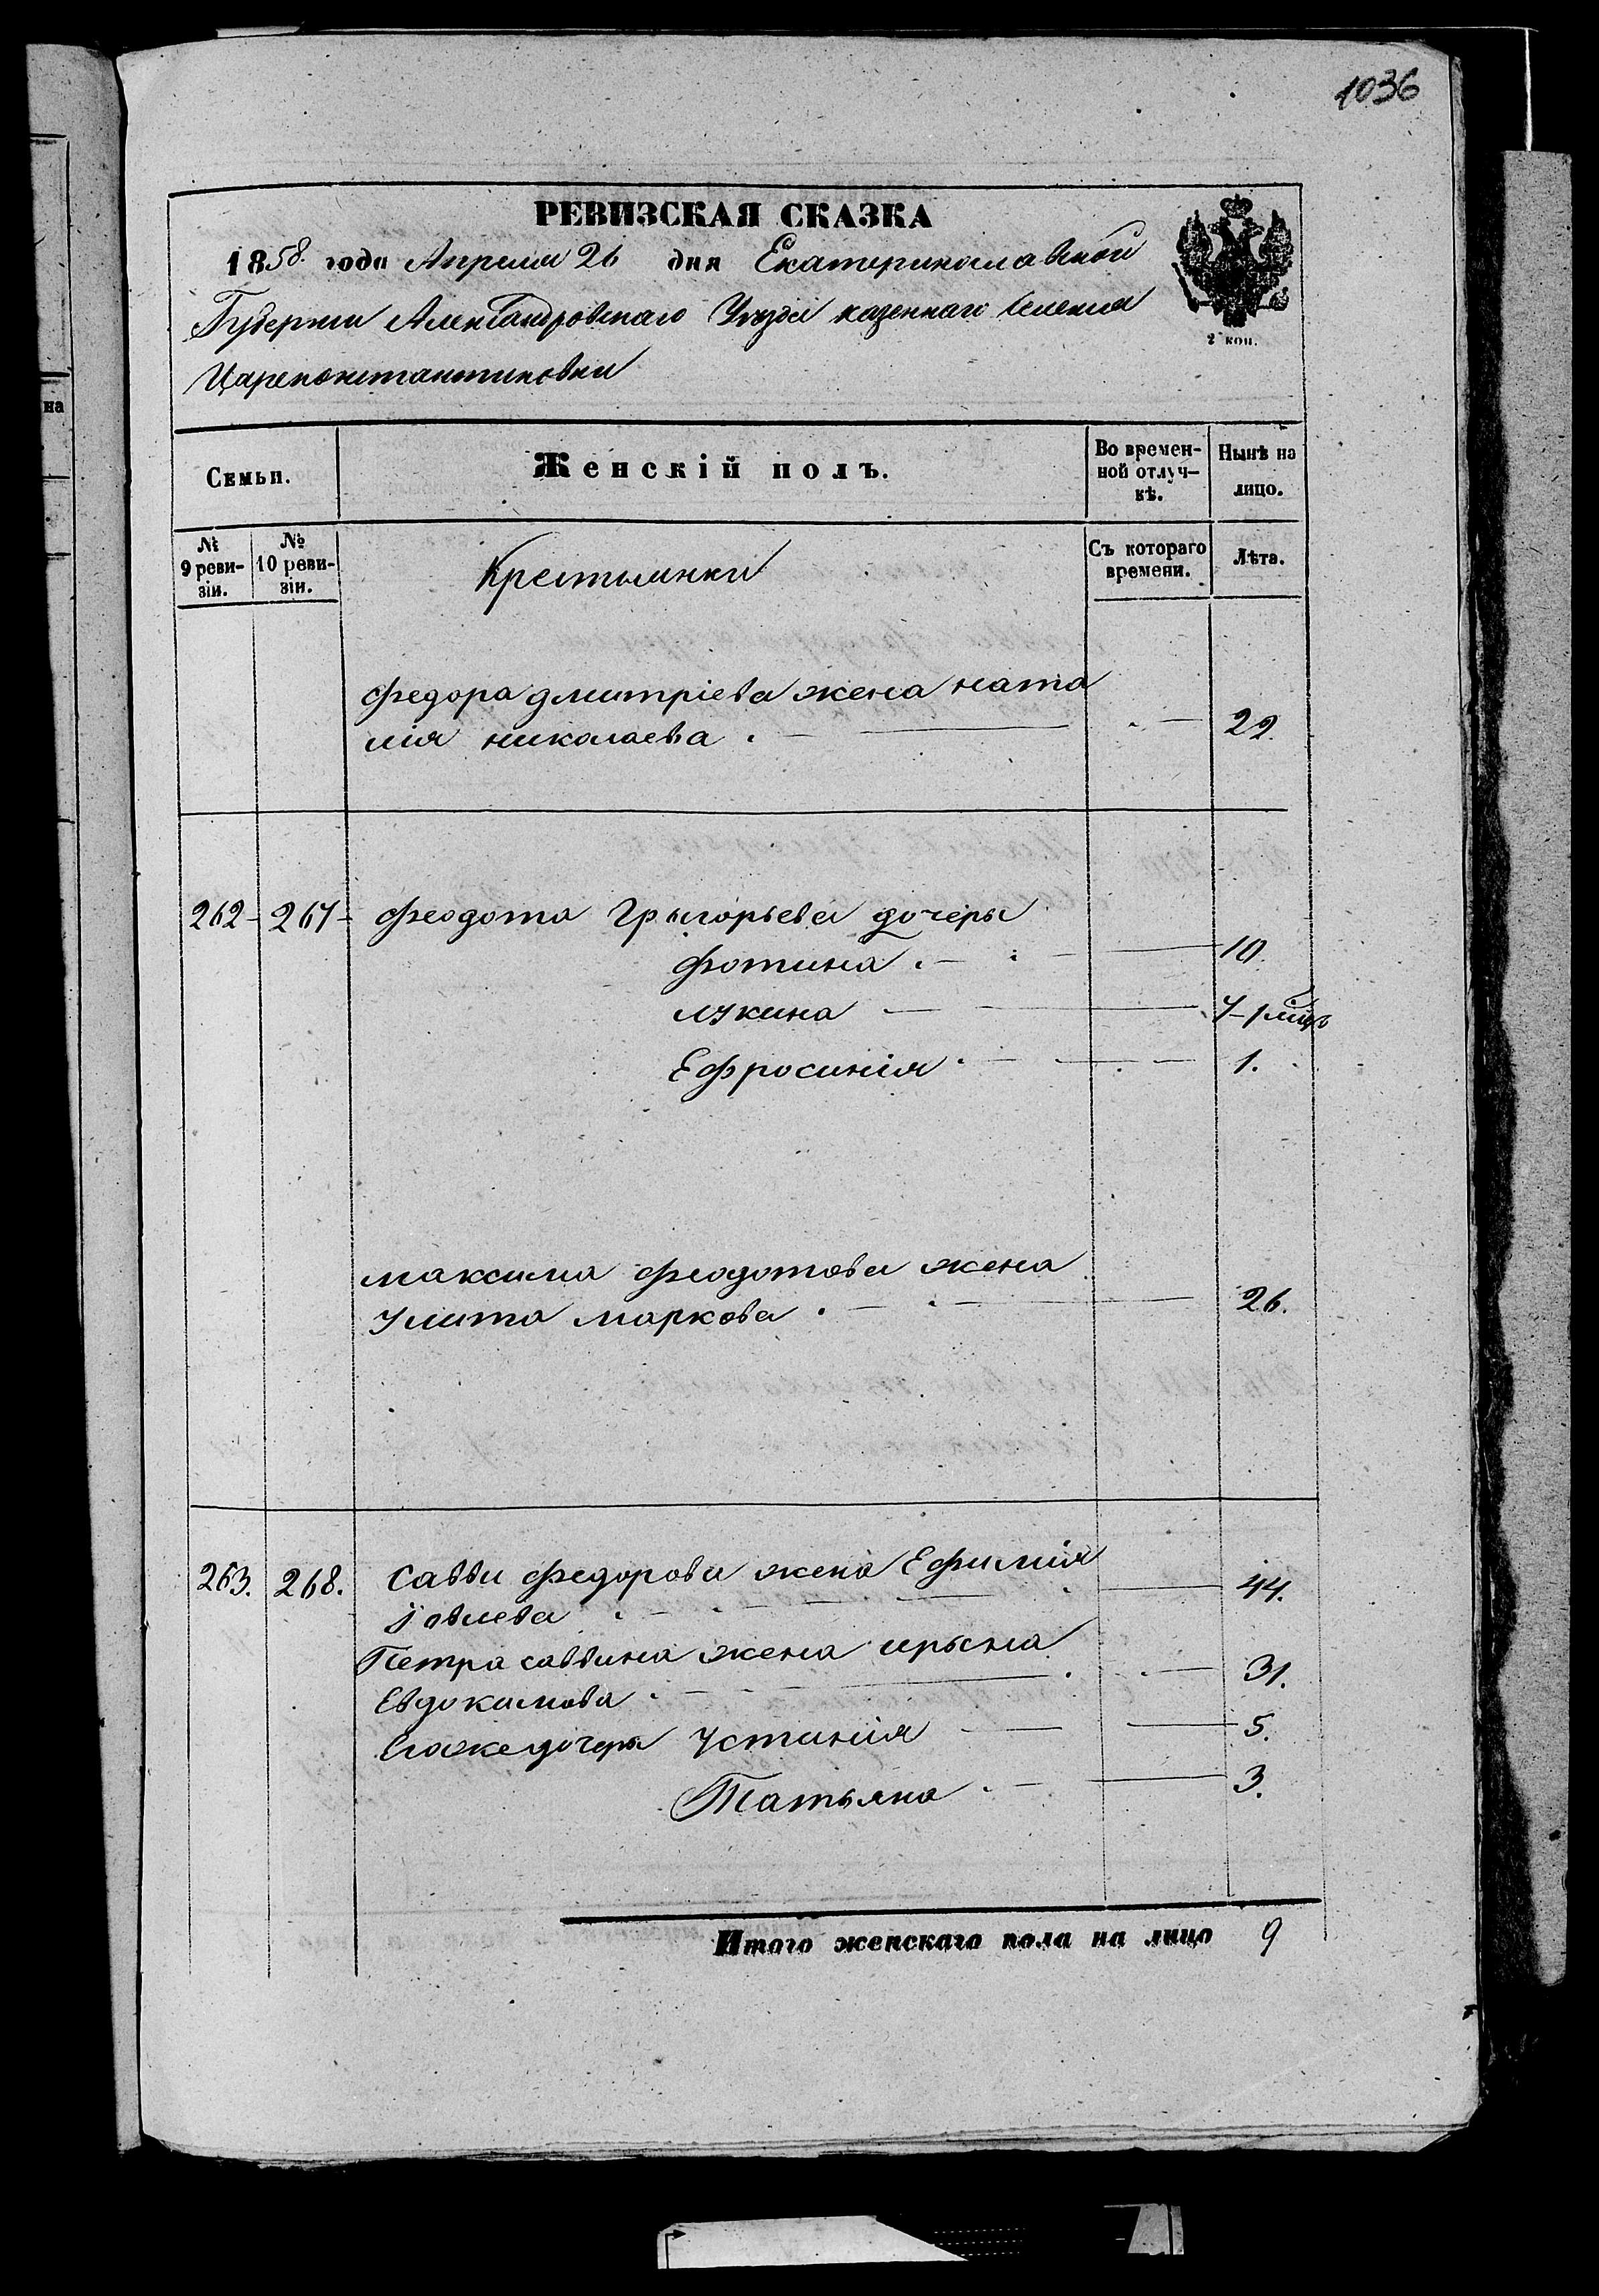 1036
РЕВИЗСКАЯ СКАЗКА
1858 года Апреля 26 дня Екатеринославской
Губернии Александровскаго Уезда казеннаго Селения
Цареконстантиновки
2 коп.
Семьи.
Женскій полъ.
Во времен-
ной отлуч-
кѣ.
Нынѣ на
лицо.
№
9 реви-
зіи.
№
10 реви-
зіи.
Крестьянки
Съ котораго
времени.
Лѣта.
на
федора дмитріева жена ната
лія николаева 22.
262 267 феодота Григорьева дочеры
фотина 10.
лукина 7
Ефросинія 1.
максима феодотова жена
улита маркова 26.
263. 268. Савви федорова жена Ефимія 44.
Іовлева
Петра саввина жена ирына
Евдокимова 31.
Егоже дочеры Устинія 5.
Татьяна 3.
Итого женскаго пола на лицо 9